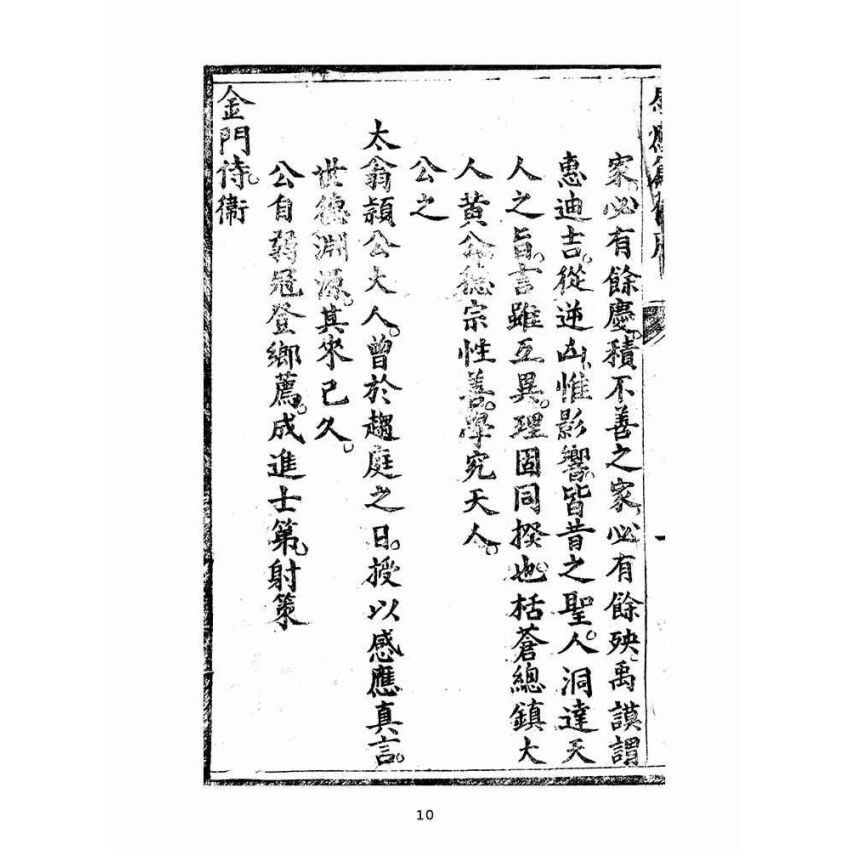 家必有餘慶。積不善之家。必有餘殃。禹謨謂
惠迪吉。從逆凶。惟影響。皆昔之聖人。洞達天
人之旨。言雖互異。理固同揆也。栝蒼總鎮大
人黃公。德宗性善。學究天人。
公之
太翁頴公大人。曾於趨庭之日。授以感應真言。
世德淵源。其來已久。
公自弱冠登鄉薦。成進士第。射策
金門侍衛
10